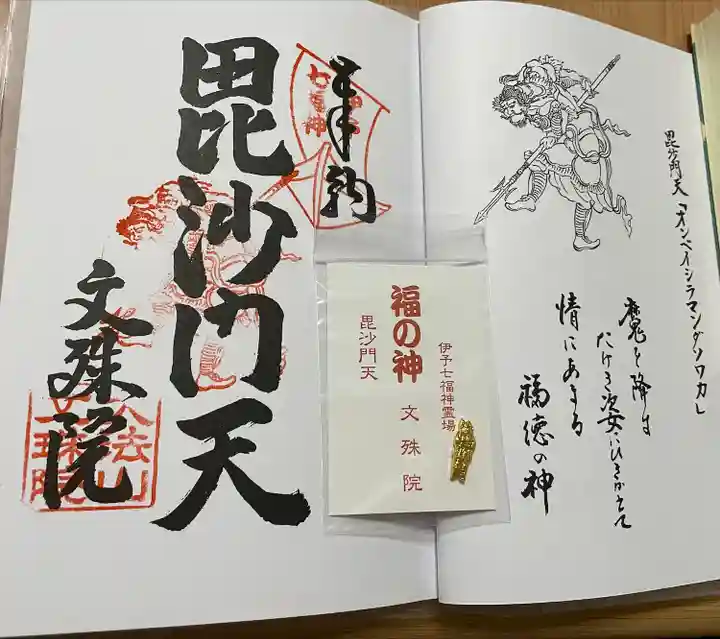 毘沙門天「オンベイシラマンダソワカ」
魔を降す
たけき姿にひきかえて
情にあまる
福徳の神
奉納
七福神
毘沙門天
文殊院
文殊院
福の神
毘沙門天
伊予七福神霊場
文殊院